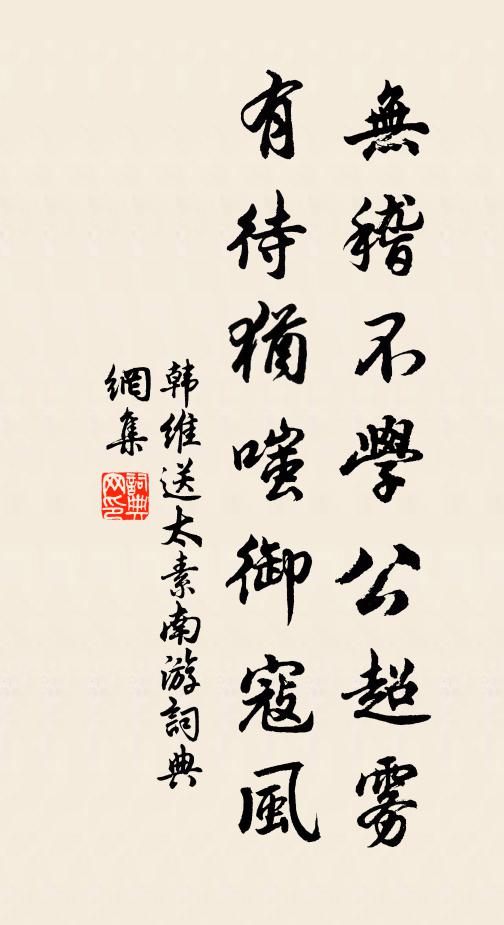 無稽不學公超雾
有待猶嗤御寇風
韩維送太素南游詞典
網集
詞典
网印